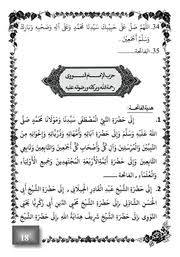 34. اَللّٰهُمَّ صَلِّ عَلَى حَبِيْبِكَ سَيِّدِنَا مُحَمَّدٍ وَعَلَى آلِهِ وَصَحْبِهِ وَبَارِكْ
وَسَلِّمْ أَجْمَعِيْنَ.
35. الفَاتِحَة...
حزب الإمام النووي
رحمة الله وبركاته ورضوانه عليه
هدية الفاتحة:
إِلَى حَضْرَةِ النَّبِيِّ الْمُصْطَفَى سَيِّدِنَا وَمَوْلَانَا مُحَمَّدٍ صَلَّى
اللهُ عَلَيْهِ وَسَلَّمَ وَإِلَى حَضْرَةِ آبَائِهِ وَأُمَّهَاتِهِ وَذُرِّيَّاتِهِ وَإِخْوَانِهِ مِنَ
النَّبِيِّيْنَ وَالْمُرْسَلِيْنَ وَآلِ كُلٍّ وَأَصْحَابِ كُلٍّ أَجْمَعِيْنَ، وَإِلَى حَضْرَةِ
التَّابِعِيْنَ، وَإِلَى حَضْرَةِ الْأَئِمَّةِ الْأَرْبَعَةِ الْمُجْتَهِدِيْنَ وَجَمِيْعِ الْأَوْلِيَاءِ
وَالْعُلَمَاءِ، الفَاتِحَة...
إِلَى حَضْرَةِ الشَّيْخِ عَبْدِ الْقَادِرِ الْجِيْلَانِي، وَإِلَى حَضْرَةِ الشَّيْخِ أَبِي
الْحَسَنِ الشَّاذِلِي، وَإِلَى حَضْرَةِ الشَّيْخِ مُحْيِي الدِّيْنِ أَبِي زَكَرِيَّا يَحْيَى
النَّوَوِي وَإِلَى حَضْرَةِ الشَّيْخِ شَرِيْف هِدَايَةِ اللهِ وَإِلَى حَضْرَةِ الشَّيْخِ
18